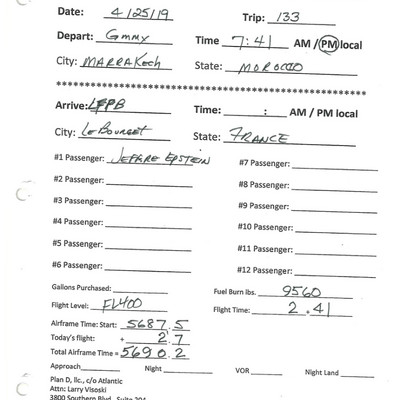 Date: 4/25/19 Trip: 133
Depart: GMMX Time 7:41 AM / PM local
City: MARRAKech State: MOROCCO
************************************************
Arrive: LFPB Time: ____:____ AM / PM local
City: LeBourget State: FRANCE
#1 Passenger: JEFFRE EPSTEIN #7 Passenger:
#2 Passenger: #8 Passenger:
#3 Passenger: #9 Passenger:
#4 Passenger: #10 Passenger:
#5 Passenger: #11 Passenger:
#6 Passenger: #12 Passenger:
Gallons Purchased: Fuel Burn lbs. 9560
Flight Level: FL400 Flight Time: 2.41
Airframe Time: Start: 5687.5
Today's flight: + 2.7
Total Airframe Time = 5690.2
Approach Night VOR Night Land
Plan D, llc., c/o Atlantic
Attn: Larry Visoski
3800 Southern Blvd. Suite 204